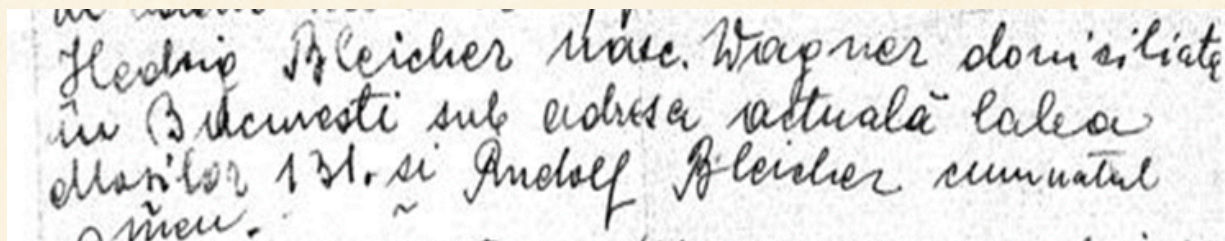 Hedwig Bleicher născ. Wagner domiciliată
în București sub adresa actuală Calea
Moșilor 131. si Rudolf Bleicher cumnatul
meu.